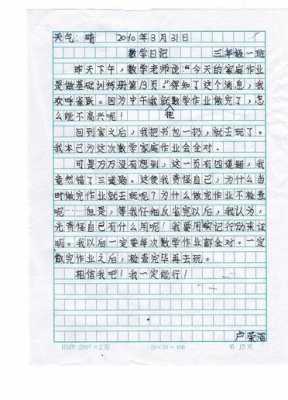 天气：晴 2010年3月31日
数学日记 三年级一班
昨天下午，数学老师说“今天的家庭作业
是做基础训练册第13页。”得知了这个消息，我
欢呼雀跃。因为中午我就把数学作业做完了，怎
么能不高兴呢！
回到家之后，我把书包一扔，就去玩了。
我本已为这次数学家庭作业会全对。
可是万万没有想到，这一页有四道题，我
竟然错了三道题。这使我责怪自己，为什么当
时做完作业就去玩呢？为什么做完作业不检查
呢 但是，等我仔细反省完以后，我认为，
光责怪自己有什么用呢！我要用实际行动来证
明。我以后一定要每次数学作业都全对。一定
做完作业之后，检查完毕再去玩。
相信我吧！我一定能行！